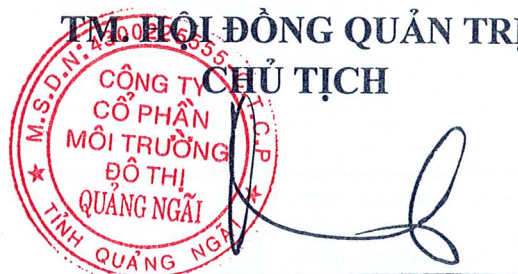 TM. HỘI ĐỒNG QUẢN TRỊ
CHỦ TỊCH
M.S.D.N: 4300225355 - C.T.C.P
CÔNG TY
CỔ PHẦN
MÔI TRƯỜNG
ĐÔ THỊ
QUẢNG NGÃI
TỈNH QUẢNG NGÃI